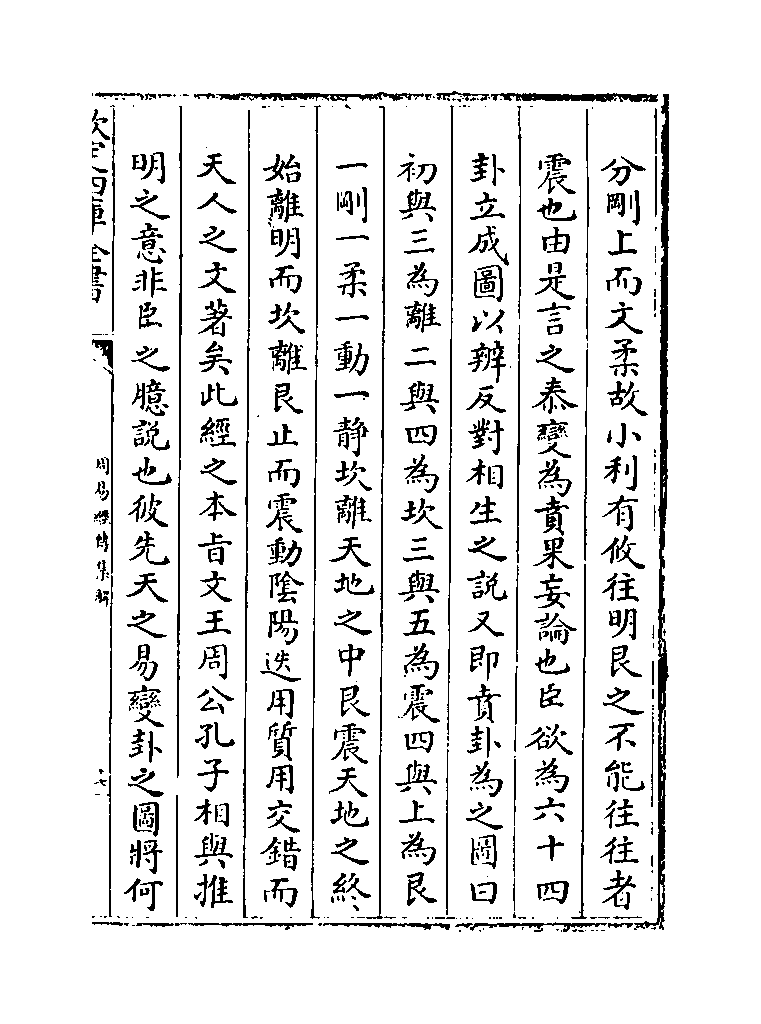 分剛上而文柔故小利有攸往明艮之不能往往者
震也由是言之泰變為賁果妄論也臣欲為六十四
卦立成圖以辨反對相生之說又即賁卦為之圖曰
初與三為離二與四為坎三與五為震四與上為艮
一剛一柔一動一靜坎離天地之中艮震天地之終
始離明而坎離艮止而震動陰陽迭用質用交錯而
天人之文著矣此經之本旨文王周公孔子相與推
明之意非臣之臆說也彼先天之易變卦之圖將何
欽定四庫全書
周易經傳集解